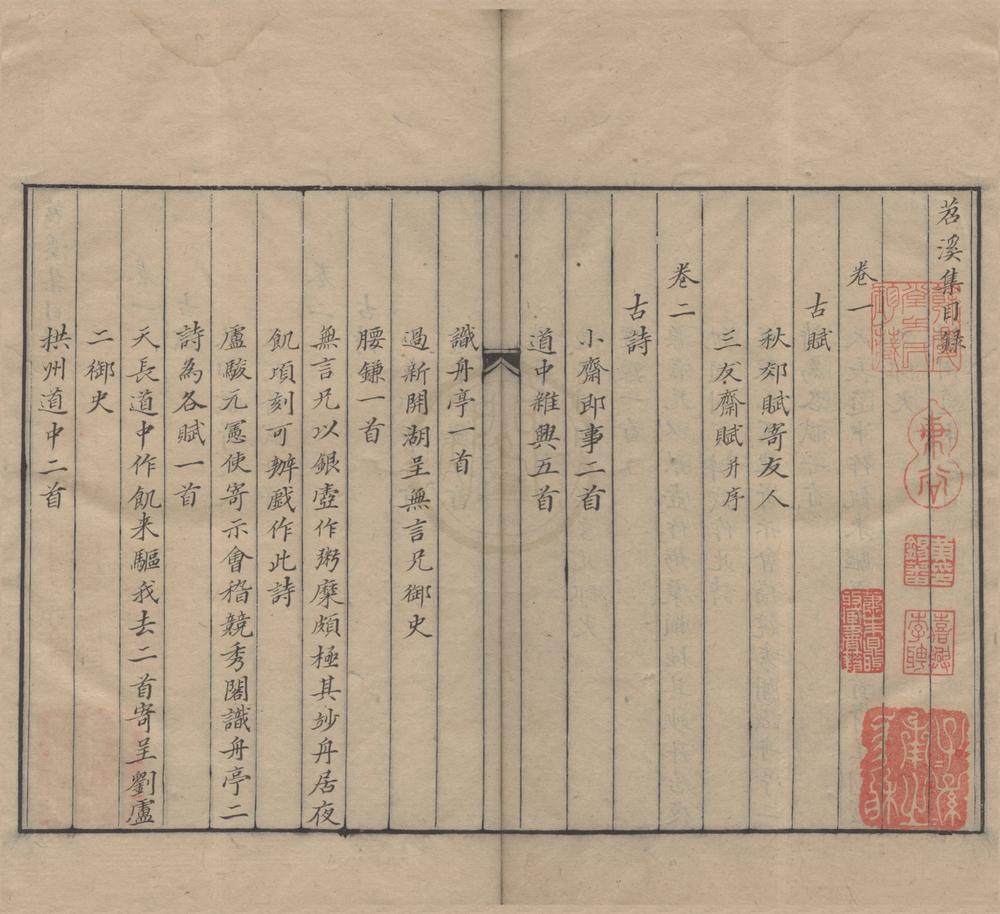 苕溪集目録
卷一
古賦
秋郊賦寄友人
三友齋賦并序
卷二
古詩
小齋即事二首
道中雜興五首
識舟亭一首
過新開湖呈無言兄御史
腰鎌一首
無言兄以銀壺作粥糜頗極其妙舟居夜
飢項刻可辦戯作此詩
盧駿元憲使寄示會稽競秀閣識舟亭二
詩為各賦一首
天長道中作飢来驅我去二首寄呈劉盧
二御史
拱州道中二首
嘉興
李聘